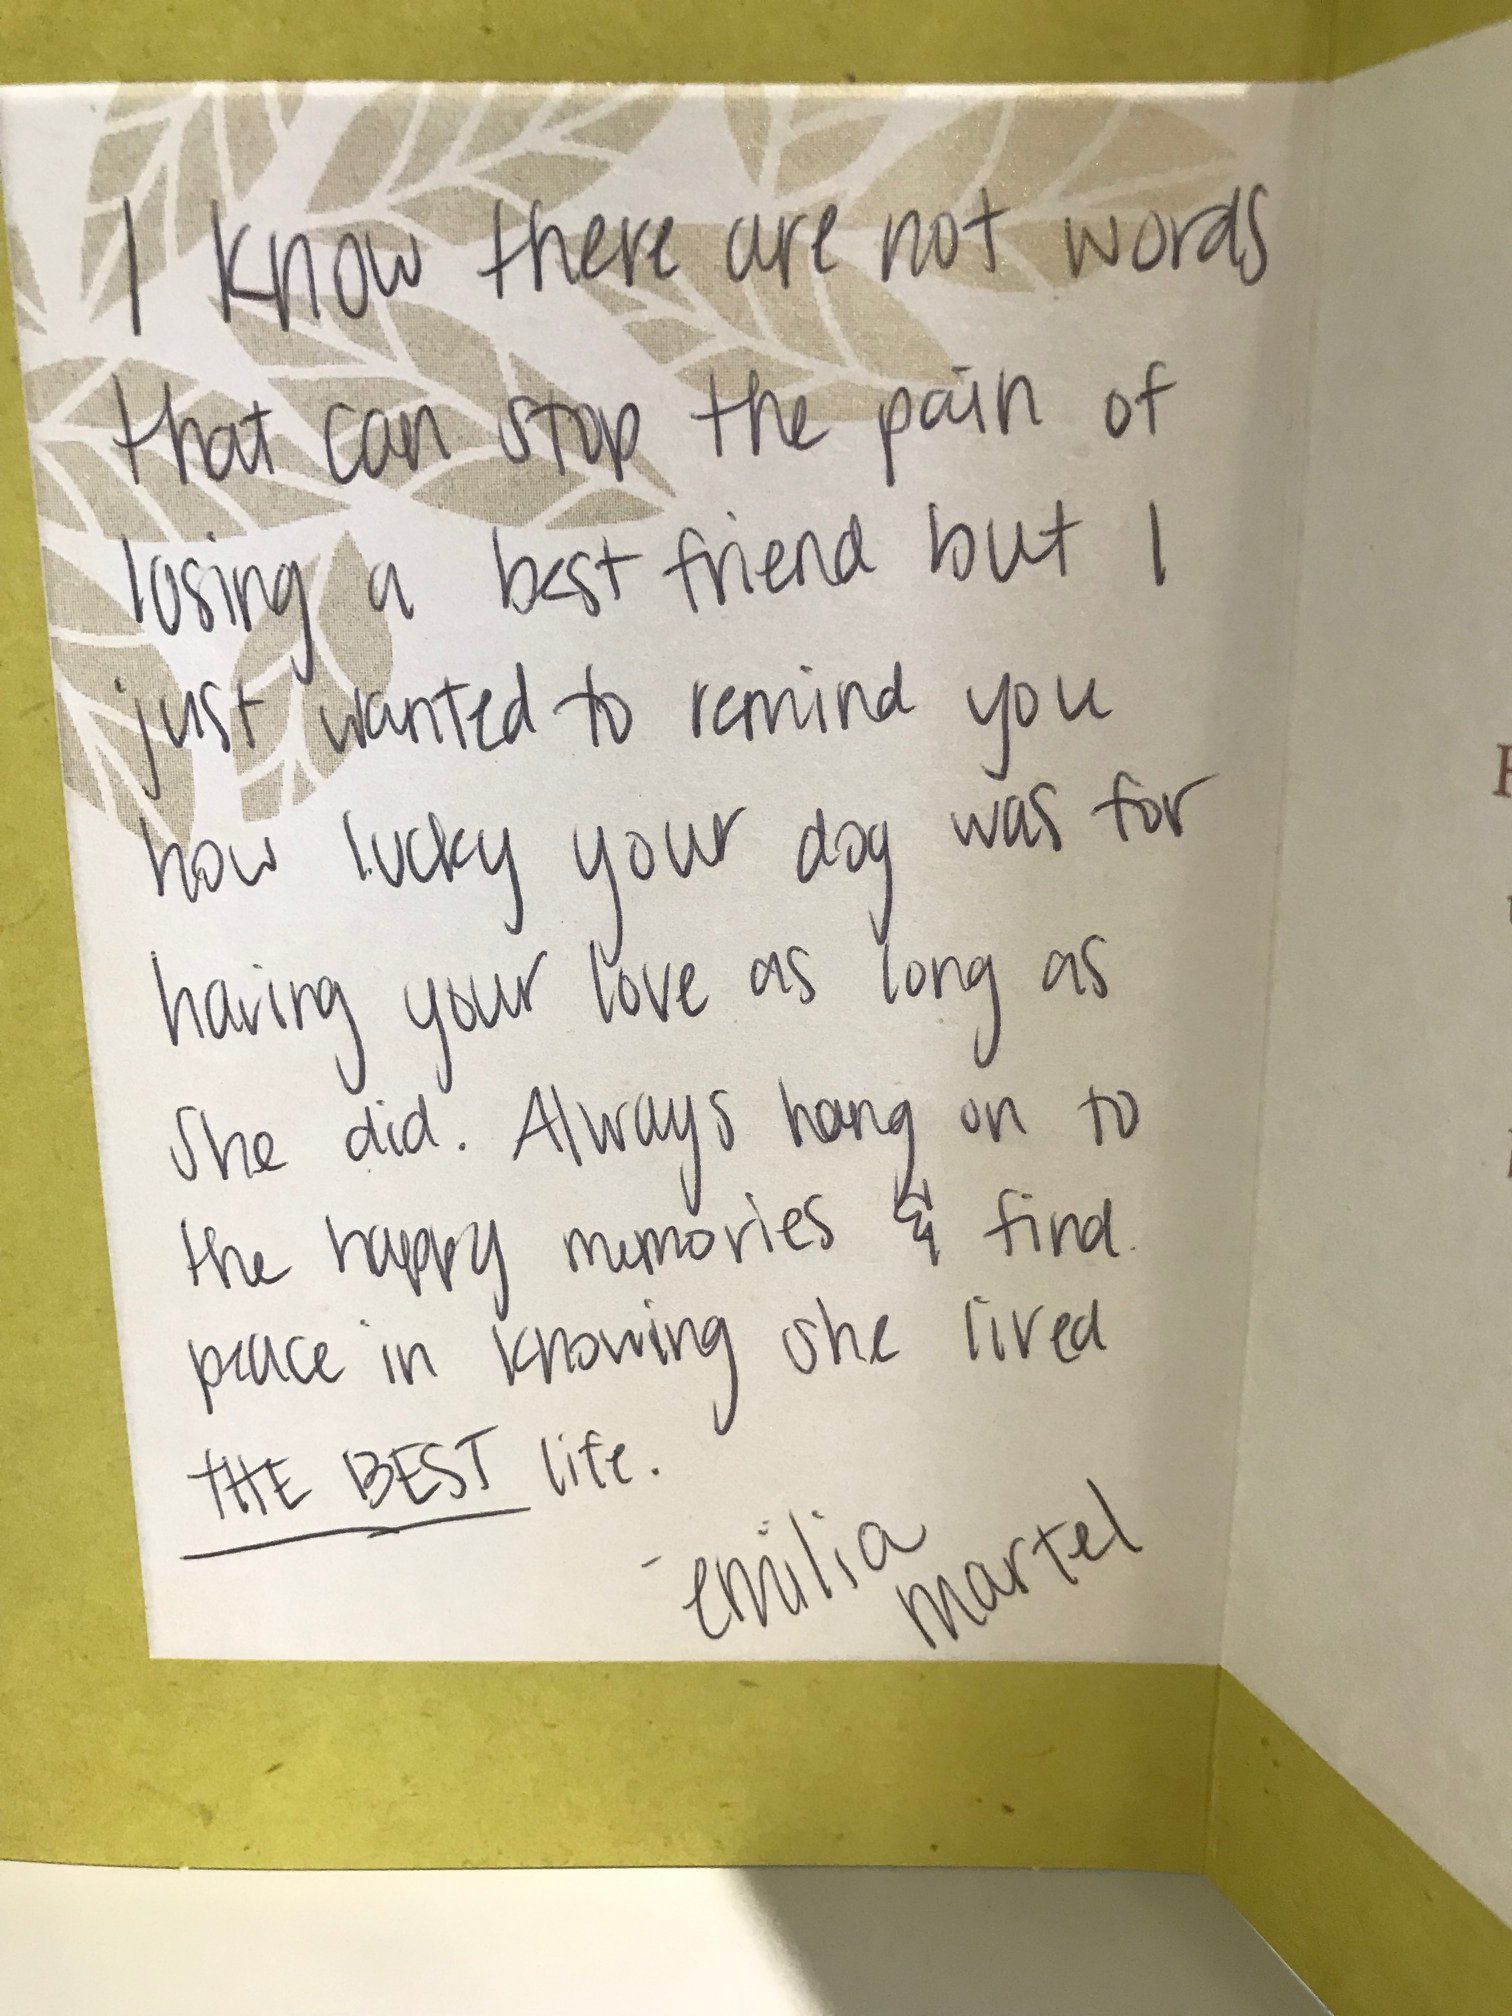 I know there are not words
that can stop the pain of
losing a best friend but I
just wanted to remind you
how lucky your dog was for
having your love as long as
she did. Always hang on to
the happy memories & find
peace in knowing she lived
THE BEST life.
-emilia
martel